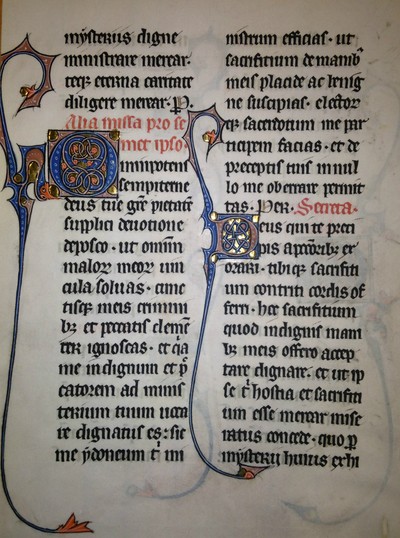 mysteriis digne
ministrare merear.
teq; eterna caritate
diligere merear. P.
Alia missa pro se
met ipso.
Omnipotens
sempiterne
deus tue gr̄e pietatem
supplici deuotione
deposco. ut omniū
maloꝝ meoꝝ uin
cula soluas. cunc
tisq; meis crimini
bꝫ et peccatis clemē
ter ignoscas. et qa
me indignum et p̄
catorem ad minis
terium tuum uoca
re dignatus es: sic
me ydoneum t̄ mi
nistrum efficias. ut
sacrificium de manibꝫ
meis placide ac benig
ne suscipias. elector
qꝫ sacerdotum me par
ticipem facias. et de
preceptis tuis in nul
lo me oberrare permit
tas. Per. Secreta.
Deus qui te preci
pis a peccatoribꝫ ex
orari. tibiqꝫ sacrifici
um contriti cordis of
ferri. hec sacrificium
quod indignis mani
bꝫ meis offero accep
tare dignare. et ut ip
se t̄ hostia et sacrifici
um esse merear mise
ratus concede. quo p̄
mysterii huius exhi